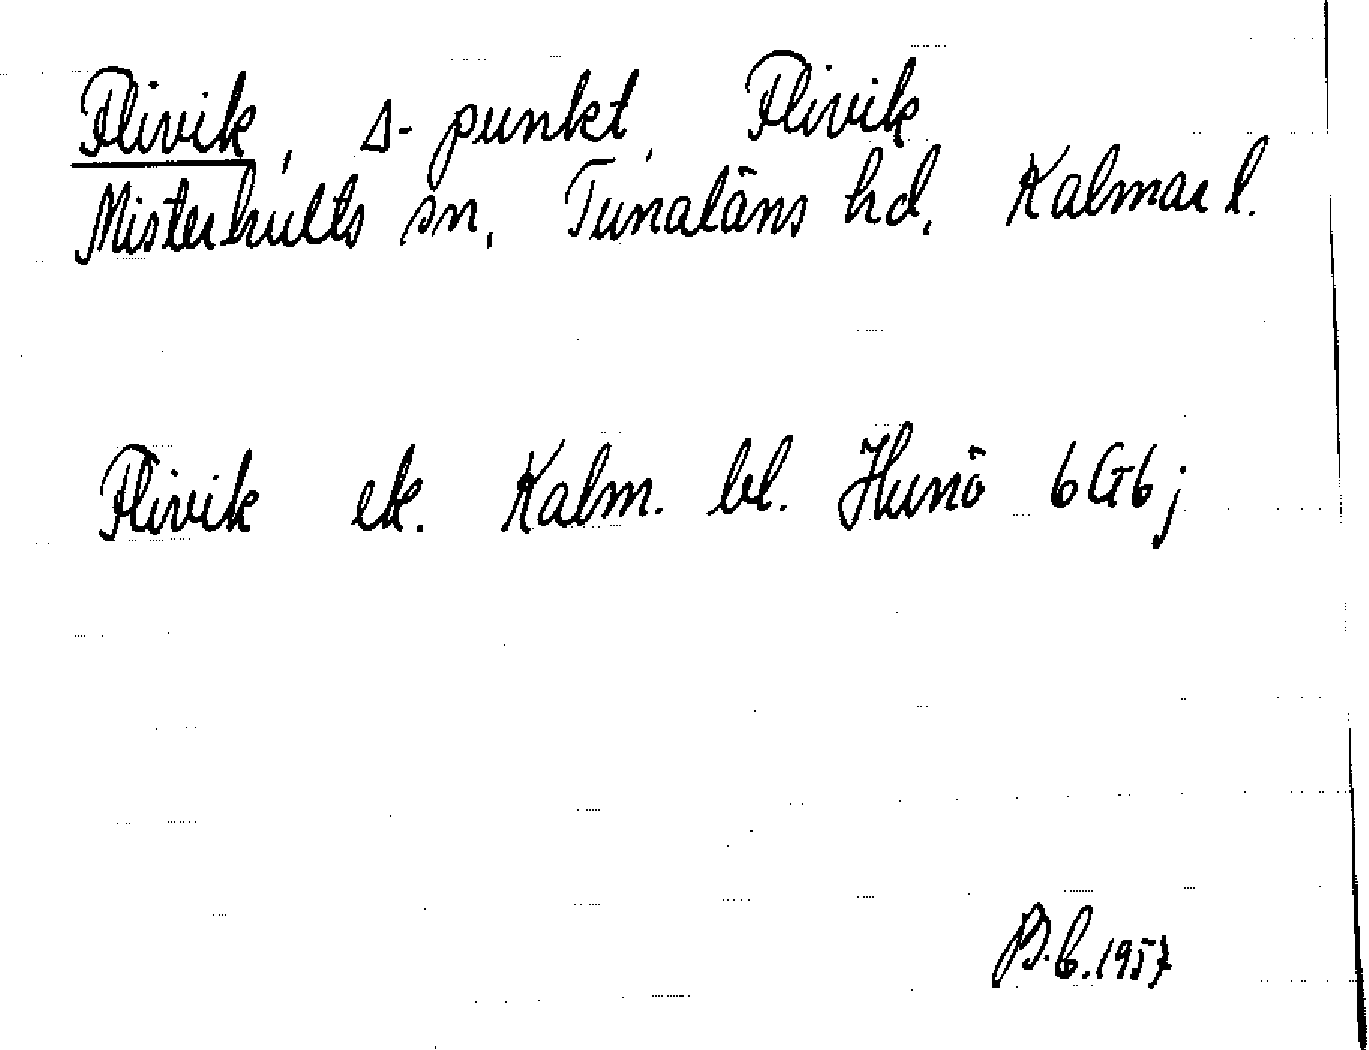 Flivik, Δ-punkt, Flivik
Misterhults sn, Tunaläns hd, Kalmar l.
Flivik ek. Kalm. bl. Hunö 6G6j
1957